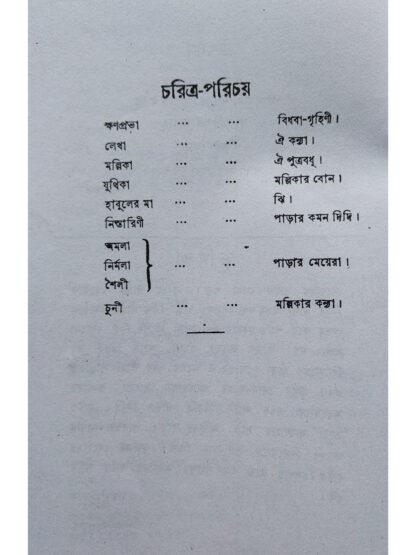 চরিত্র-পরিচয়
ক্ষণপ্রভা ... ... বিধবা-গৃহিণী।
লেখা ... ... ঐ কন্যা।
মল্লিকা ... ... ঐ পুত্রবধূ।
যুথিকা ... ... মল্লিকার বোন।
হাবুলের মা ... ... ঝি।
নিস্তারিণী ... ... পাড়ার কমন দিদি।
অমলা
নির্মলা } ... ... পাড়ার মেয়েরা।
শৈলী
চুনী ... ... মল্লিকার কন্যা।